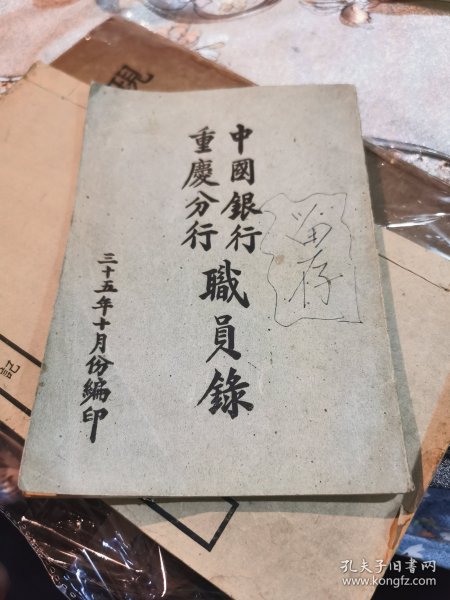 中國銀行
重慶分行
職員錄
三十五年十月份編印
留存
現
記
孔夫子旧书网
www.kongfz.com